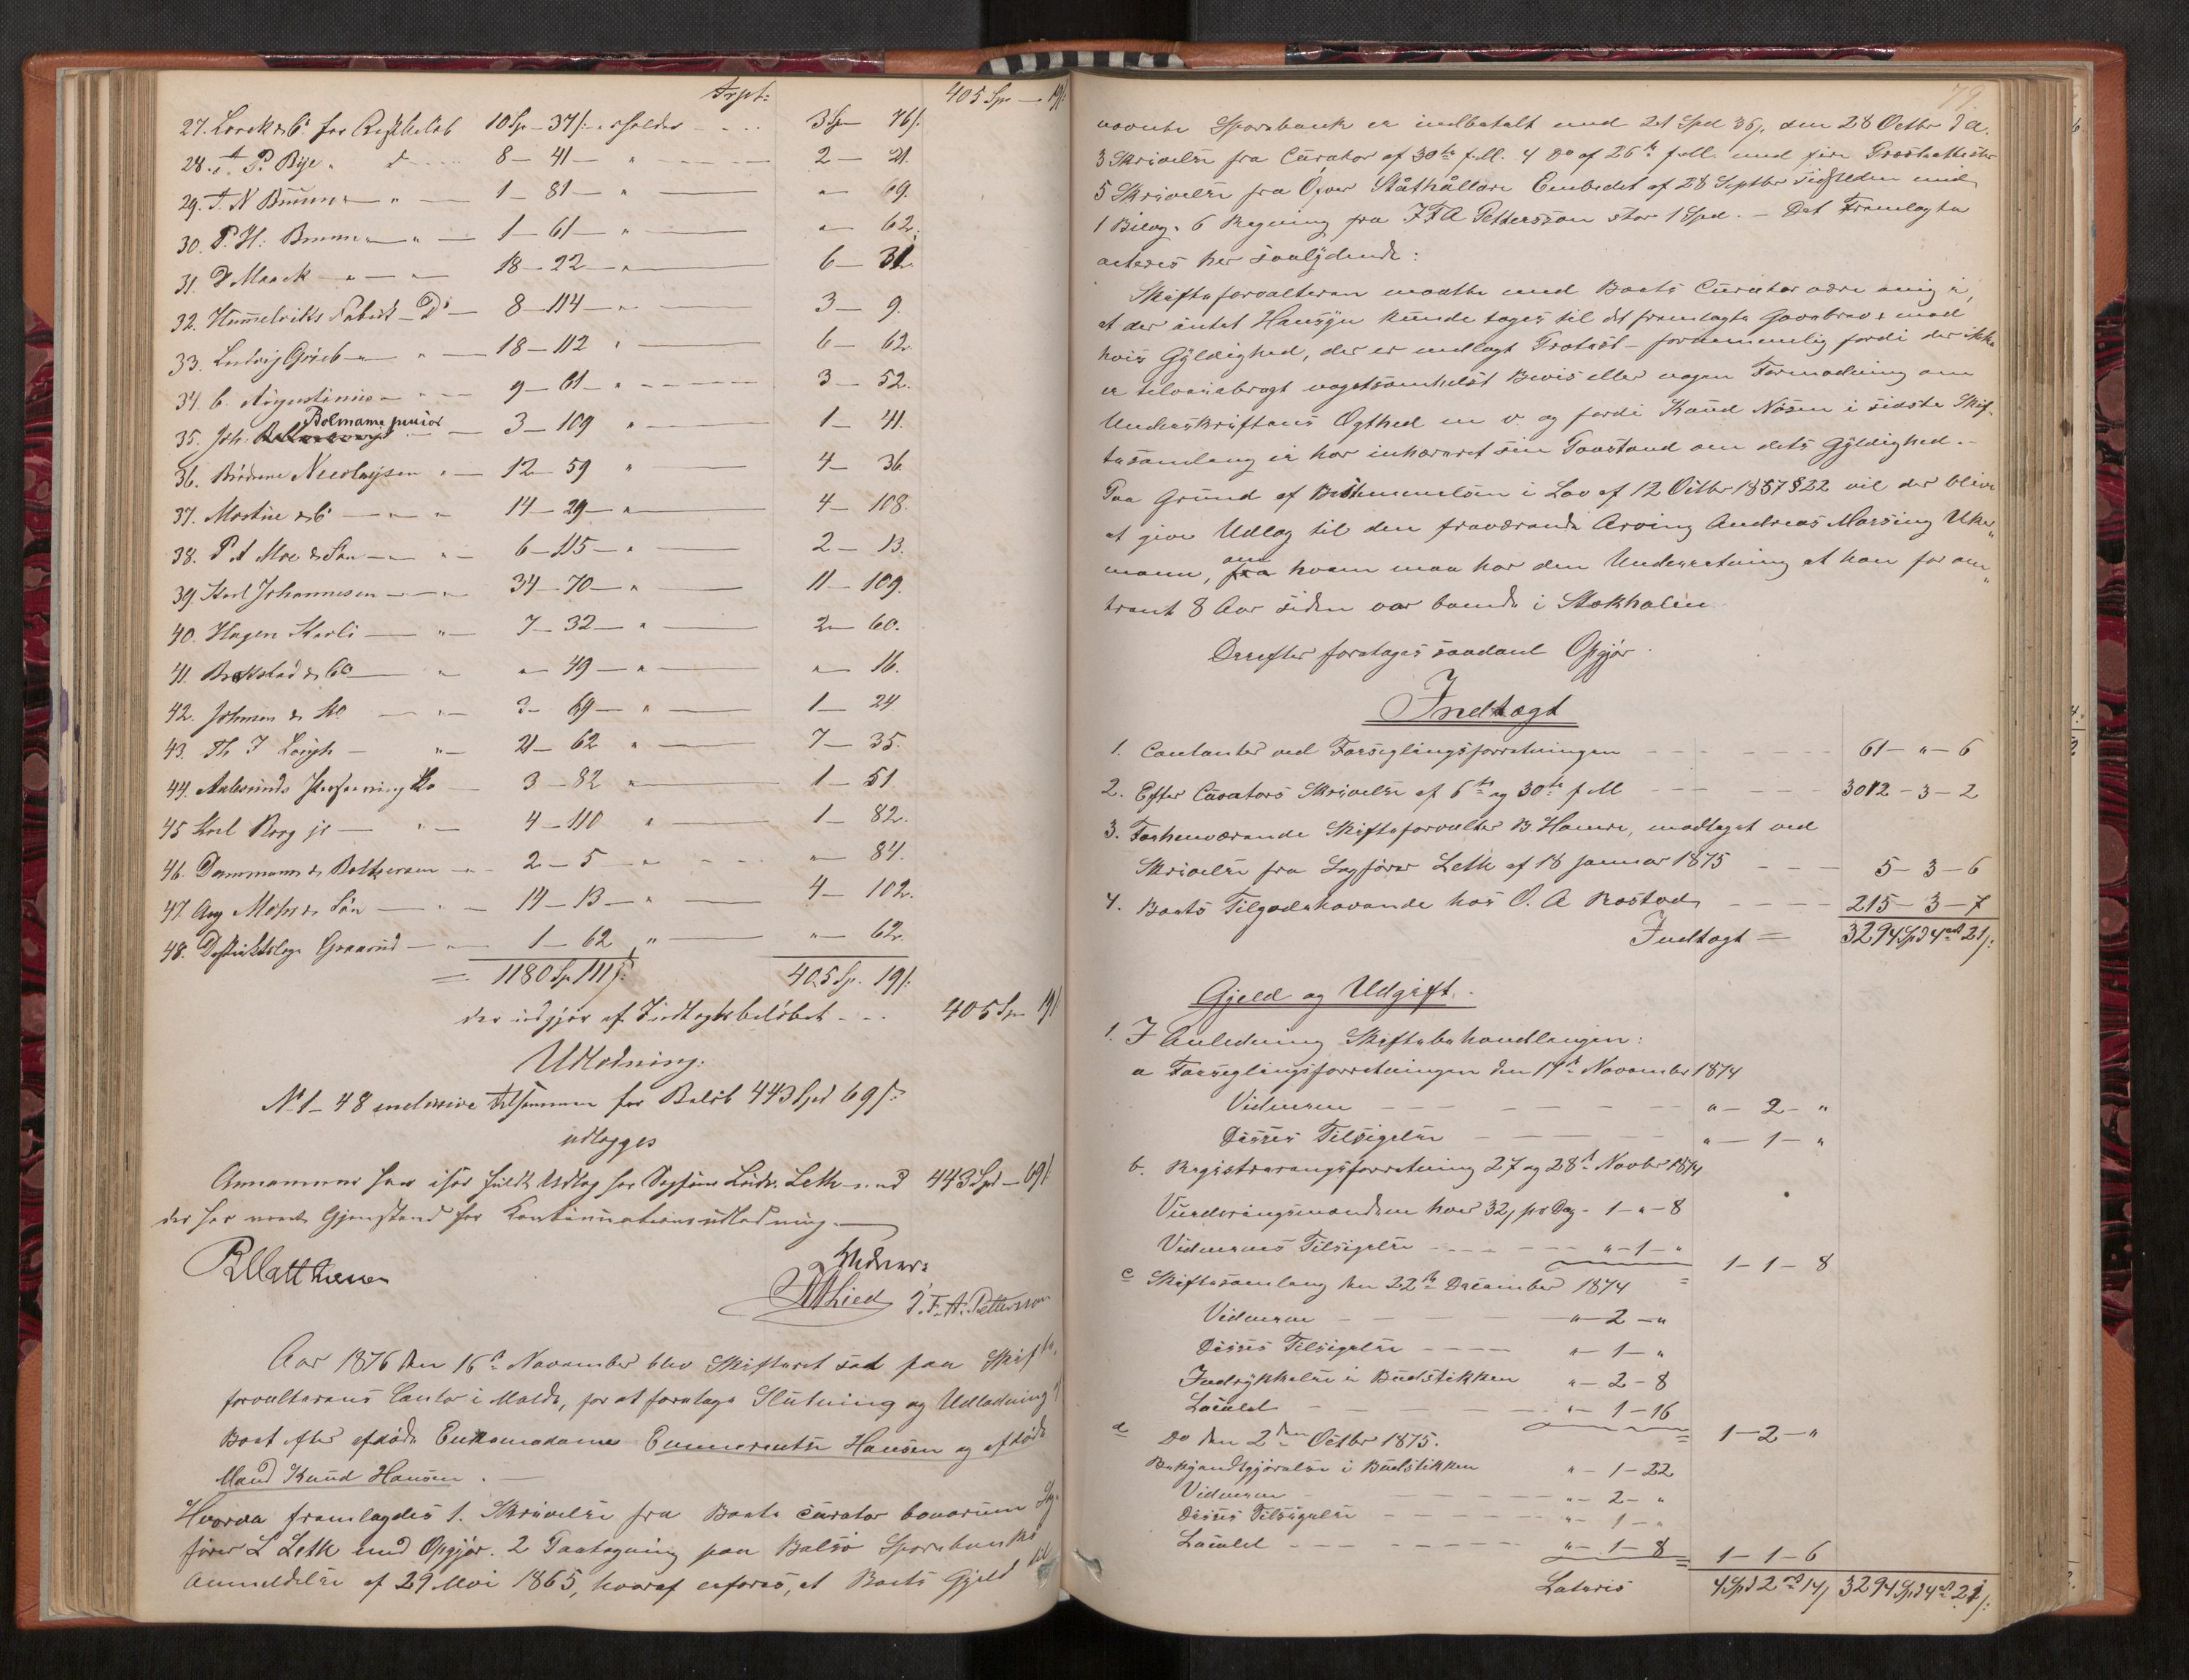 Trpt: 405 Sp — 19/:
27. Lorck & Co. for Restbeløb 10 Sp — 37/: erholder 3 Sp — 76/.
28. A. P. Bye " d 8 — 41 — " 2 — 21.
29. T. N Bruun " 1 — 81 — " " — 69.
30. P. H: Bruun " 1 — 61 — " " — 62.
31. D Maack " 18 — 22 — " 6 — 31.
32. Hummelviks Fabrik — Do 8 — 114 — " 3 — 9.
33. Ludvig Grieb " " 18 — 112 " 6 — 62.
34. C. Augustinius " 9 — 61 — " 3 — 52.
35. Joh. Bolmann junior 3 — 109 " 1 — 41.
36. Brødrene Nicolaysen " 12 — 59 " 4 — 36.
37. Mostue & Co " " 14 — 29 — " 4 — 108.
38. P A Moe & Søn " " 6 — 115 — " 2 — 13.
39. Karl Johannesen " " 34 — 70 — " 11 — 109.
40. Hagen Skarli " 7 — 32 — " 2 — 60.
41. Brekstad & Co " " — 49 — " " — 16.
42. Johnsen & Ko " 3 — 69 — " 1 — 24
43. Th J Løvgh — " 21 — 62 " 7 — 35.
44. Aalesunds 3 — 82 " 1 — 51
45 Karl Borg jr — " 4 — 110 " 1 — 82.
46. Dammann & Rasmussen " 2 — 5 — " " — 84.
47. Aug Mohr & Søn — " 14 — 13 — " 4 — 102.
48. Distriktslæge Graarud — " 1 — 62 " " — 62.
= 1180 Sp 111/: 405 Sp. 19/:
der udgjør af Indtægtsbeløbet 405 Sp 19/
Udlodning.
No 1 — 48 inclusive tilsammen for Beløb 443 Spd 69/:
udlægges
Anmammes her især fuldt Udlæg hos Sagfører Leth med 443 Spd — 69/
der har været Gjenstand for Kontinuationsudlodning.
R Matthiesen Vidner:
Lied J. F. A. Pettersson
Aar 1876 den 16de November blev Skifteret sat paa Skifte-
forvalterens Contor i Molde, for at foretage Slutning og Udlodning i
Boet efter afdøde Enkemadame Emmerentse Hansen og afdøde
Mand Knud Hansen. —
Hvorva fremlagdes 1. Skrivelse fra Boets curator bonorum Sag-
fører L Leth med Opgjør. 2 Paategning paa Balsø Sparebanks
Anmeldelse af 29 Mai 1865, hvoraf erfares, at Boets Gjeld til
79
nævnte Sparebank er indbetalt med 21 Spd 36/, den 28 Octbr d A.
3 Skrivelse fra Curator af 30te f. M. 4 Do af 26te f. M. med fire Præsteattester
5 Skrivelse fra Öfver Ståthållare Embedet af 28 Septbr sidstleden med
1 Bilag. 6 Regning fra J F A Pettersson stor 1 Spd. — Det Fremlagte
acteres her saalydende:
Skifteforvalteren maatte med Boets Curator være enig i,
at der intet Hensyn kunde tages til det fremlagte Gavebrev, mod
hvis Gyldighed, der er nedlagt Protest — fornemmelig fordi der ikke
er tilveiebragt nogetsomhelst Bevis eller nogen Formodning om
Underskriftens Ægthed m v. og fordi Knud Nøsen i sidste Skif-
tesamling ei har inhæreret sin Paastand om dets Gyldighed. —
Paa Grund af Bestemmelsen i Lov af 12 Octbr 1857 § 22 vil der blive
at give Udlæg til den fraværende Arving Andreas Morsing Uke-
mann, om hvem man har den Underretning at han for om-
trent 8 Aar siden var boende i Stokholm.
Derefter foretages saadant Opgjør.
Indtægt
1. Contanter ved Forseglingsforretningen 61 — " — 6
2. Efter Curators Skrivelse af 6te og 30te f M 3012 — 3 — 2
3. Forhenværende Skifteforvalter B. Hamre, modtaget ved
Skrivelse fra Sagfører Leth af 18 Januar 1875 5 — 3 — 6
4. Boets Tilgodehavende hos O. A Rostad 215 — 3 — 7
Indtægt = 3294 Spd 4 ort 21/:
Gjeld og Udgift.
1. I Anledning Skiftebehandlingen:
a Forseglingsforretningen den 17de November 1874
Vidnerne " — 2 — "
Disses Tilsigelse " — 1 — "
b. Registreringsforretning 27 og 28de Novbr 1874
Vurderingsmændene hver 32/ pr Dag — 1 — " — 8
Vidnernes Tilsigelse " — 1 — "
1 — 1 — 8
c Skiftesamling den 22de December 1874
Vidnerne " — 2 — "
Disses Tilsigelse " — 1 — "
Indrykkelse i Budstikken " — 2 — 8
Localet " — 1 — 16
= 1 — 2 — "
d Do den 2den Octbr 1875.
Bekjendtgjørelse i Budstikken " — 1 — 22
Vidnerne " — 2 — "
Disses Tilsigelse " — 1 — "
Localet " — 1 — 8 = 1 — 1 — 6
Lateris 4 Spd 2 ort 14/ 3294 Spd 4 ort 21/: